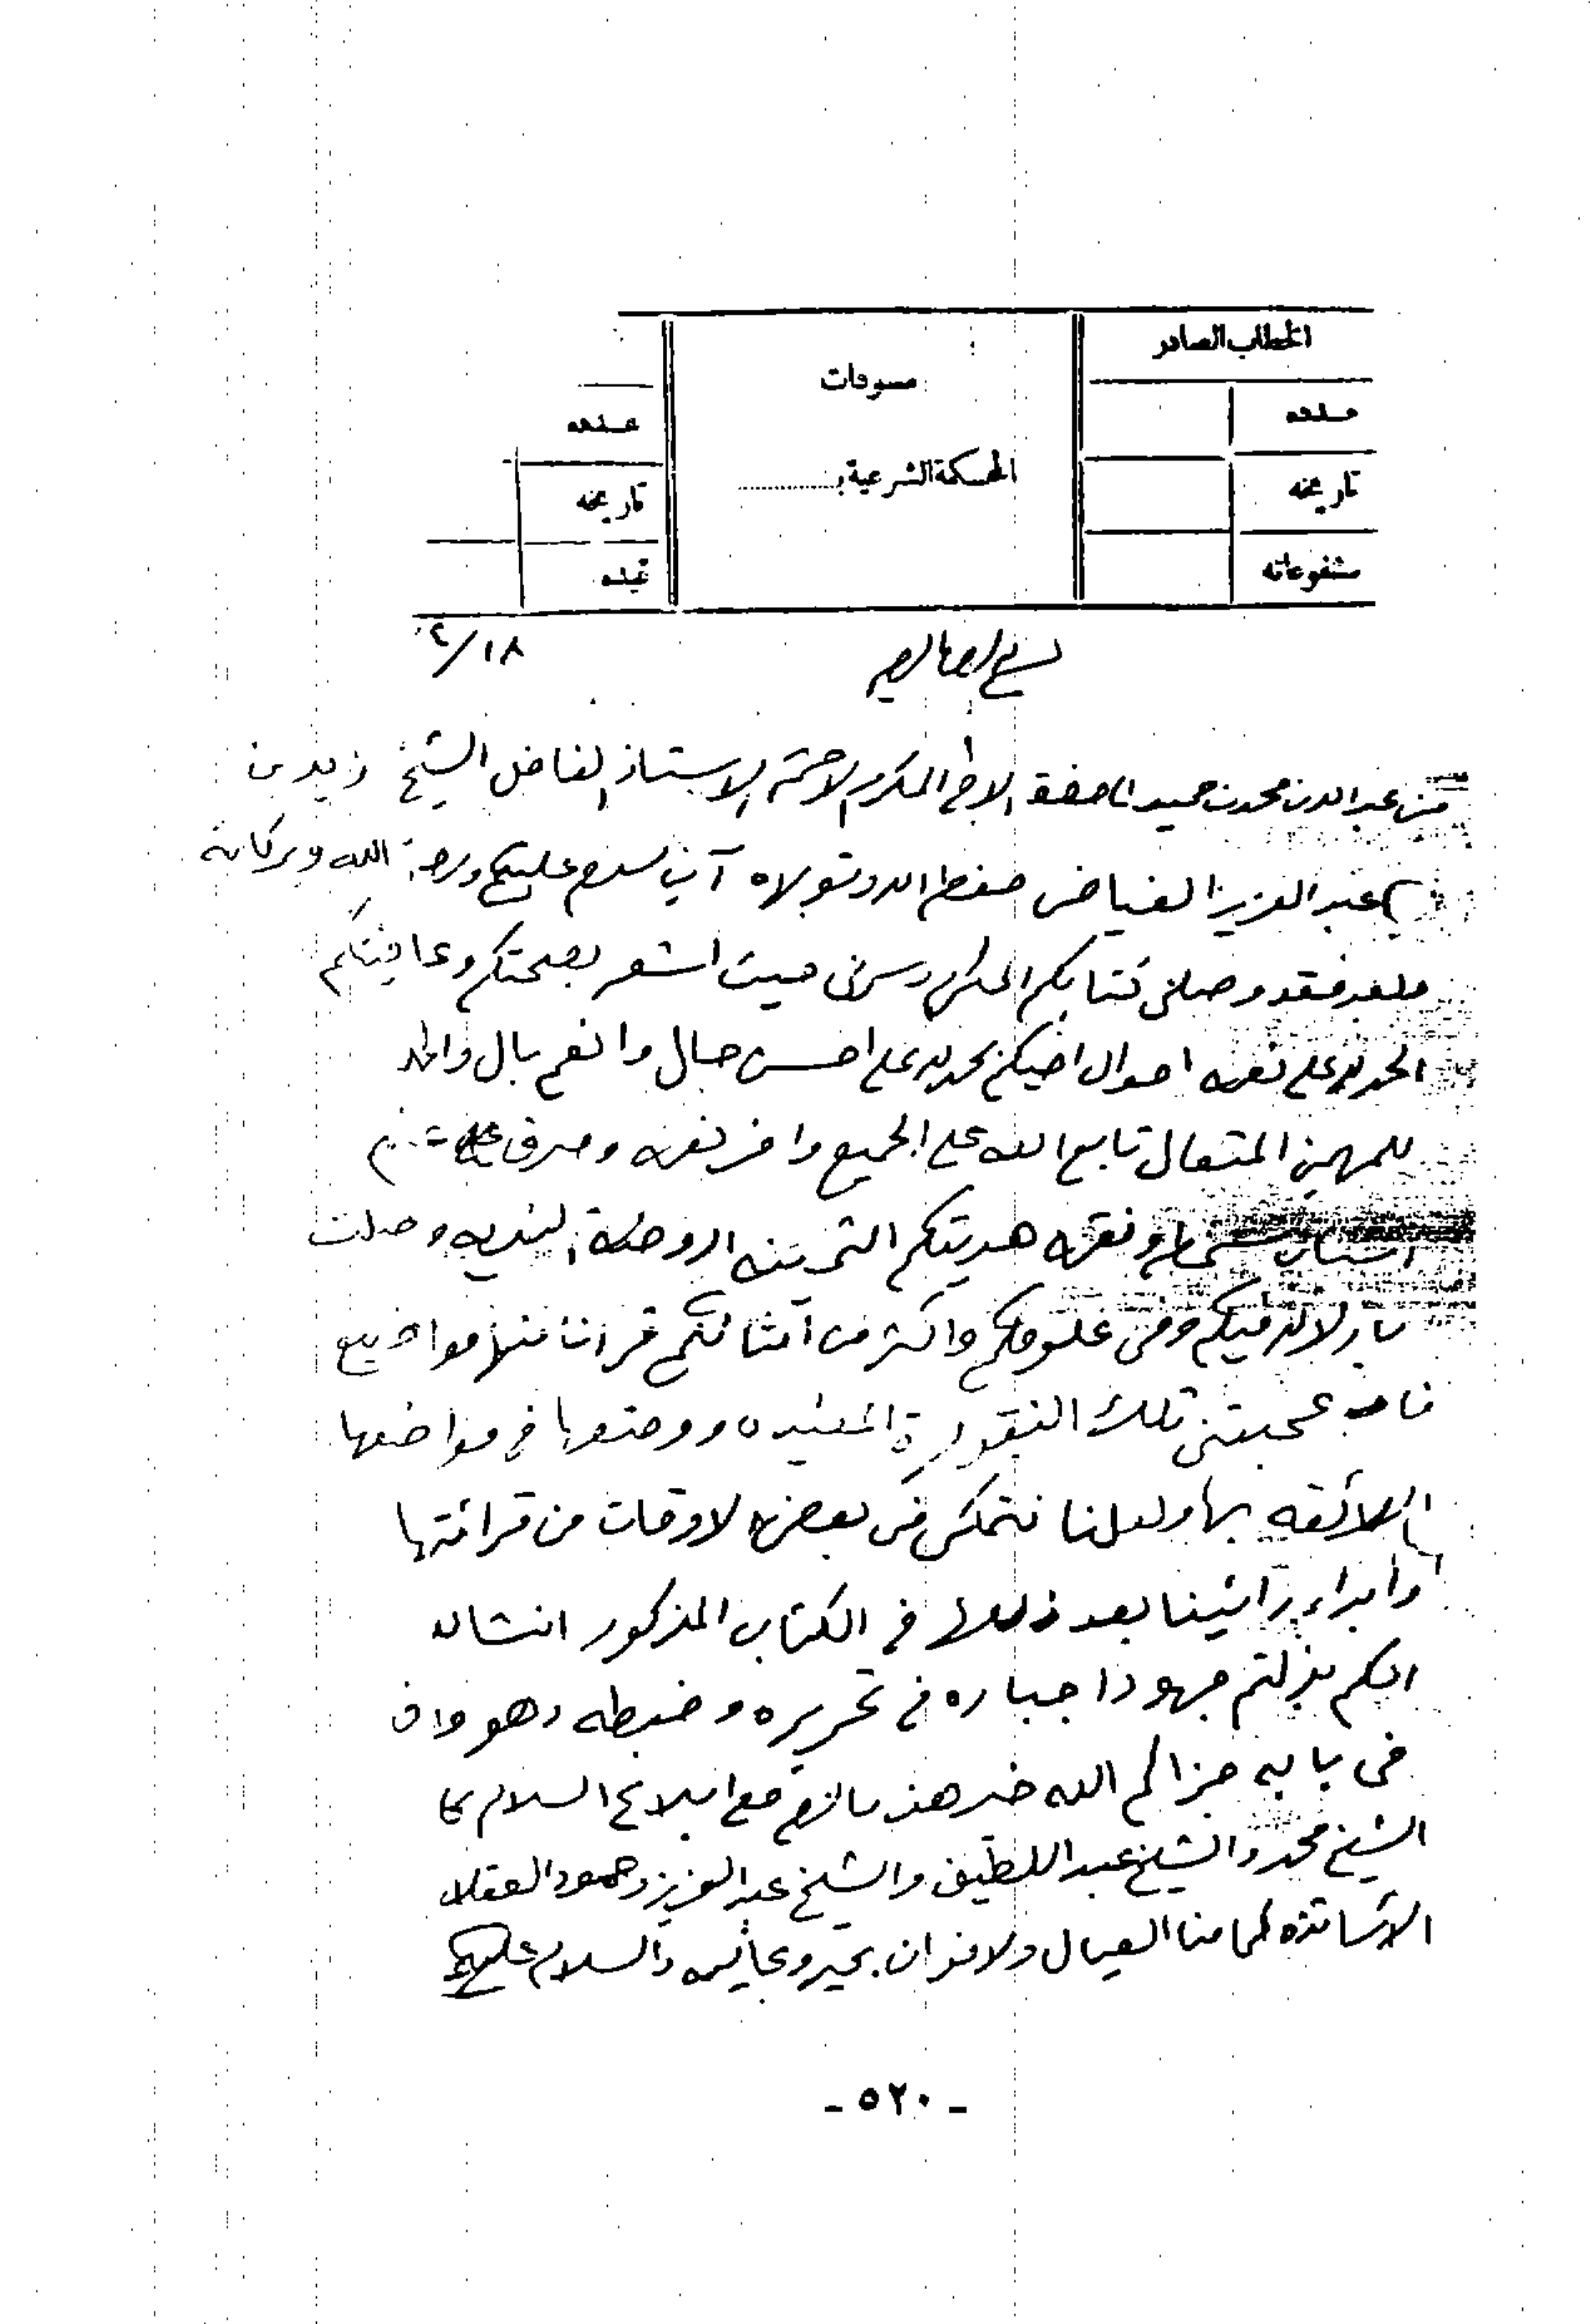 الخطاب الصادر
مسودات
عدده
عدده
المحكمة الشرعية بـ
تاريخه
تاريخه
مشفوعاته
قيده
١٨/٢
من عبد الله بن محمد بن حميد الى حضرة الاخ المكرم الاحشم الاستاذ الفاضل الشيخ زيد بن
عبد العزيز الفياض حفظه الله وتولاه آمين سلام عليكم ورحمة الله وبركاته
وبعد فقد وصلني كتابكم المكرم وسرني حيث اشعر بصحتكم وعافيتكم
الحمد لله على نعمه احوال اخيكم بحمد لله على احسن حال وانعم بال والحمد
للمهيمن المتعال تابع الله على الجميع وافر نعمه وصرف
ونعمه هديتكم الثمينه الروضة النديه وصلت
بارك الله فيكم وفي علومكم واكثر من امثالكم قرانا منها مواضيع
فاعجبتني تلك النقول المفيده ووضعها في مواضعها
اللائقه بها ولعلنا نتمكن في بعض الاوقات من قرائتها
وابداء رائينا بعد ذلك في الكتاب المذكور انشاله
انكم بذلتم جهودا جباره في تحريره وضبطه وهو واف
في بابه جزاكم الله خير هذا ما لزم مع ابلاغ السلام
الشيخ محمد والشيخ عبد اللطيف والشيخ عبد العزيز وحمود العقلا
الاساتذه كما منا العيال والاخوان بخير وعافيه والسلام عليكم
- ٥٢٠ -